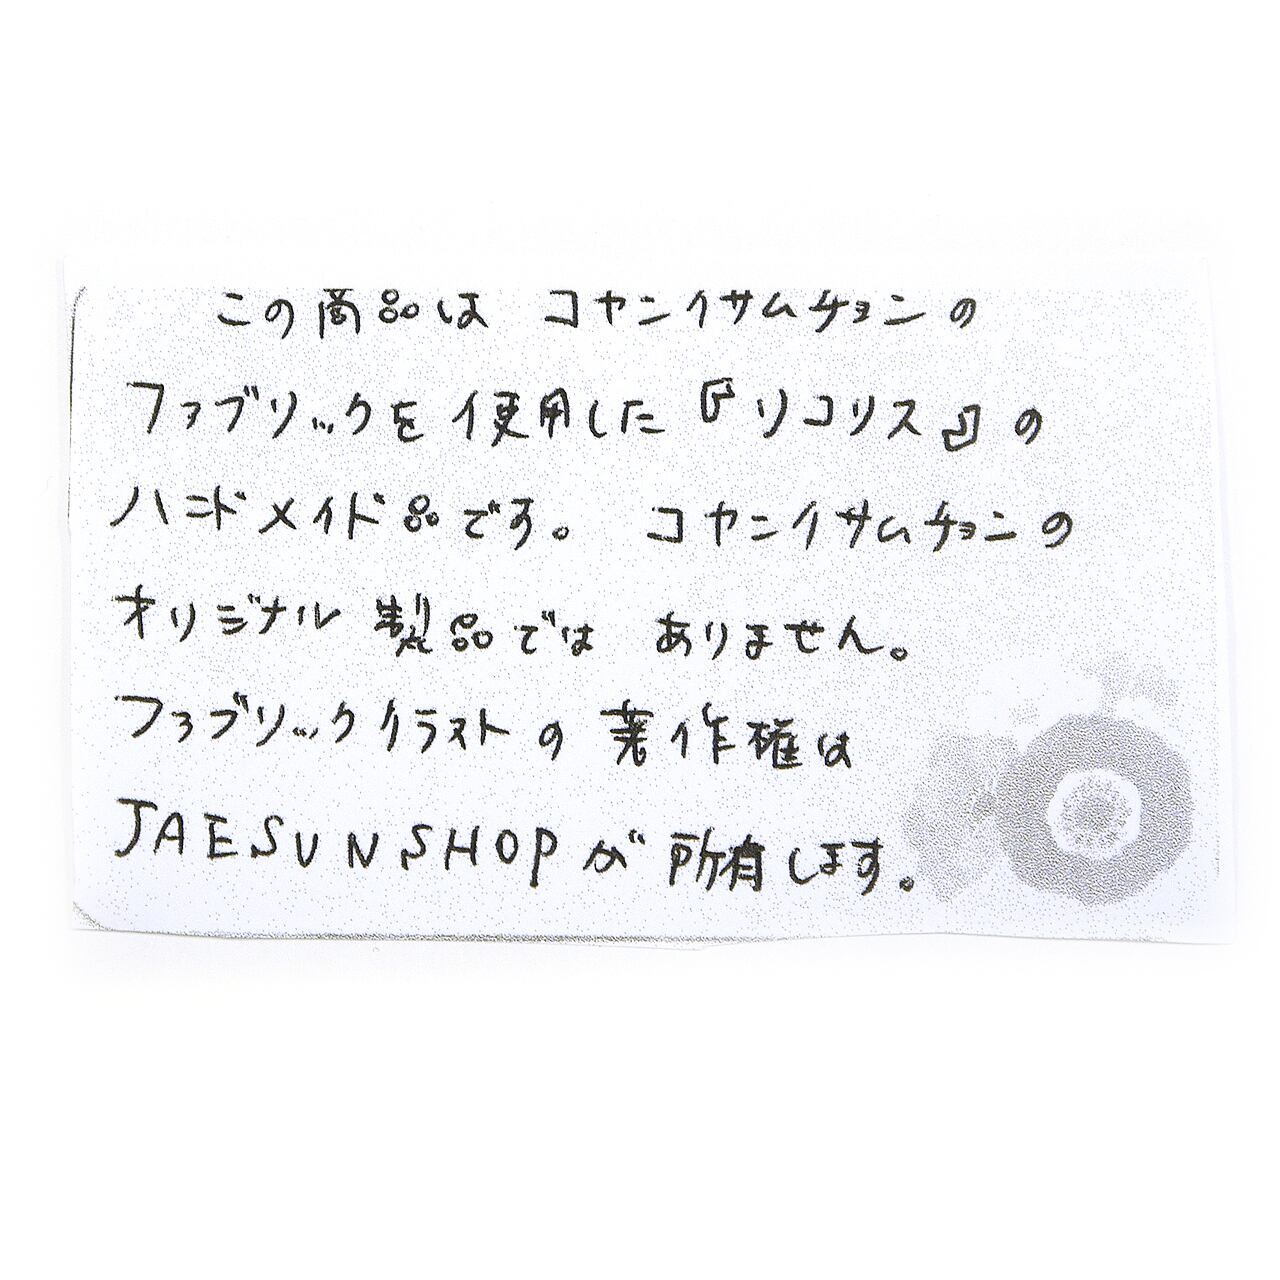 この商品は コヤンイサムチョンの
ファブリックを使用した『リコリス』の
ハンドメイド品です。 コヤンイサムチョンの
オリジナル製品では ありません。
ファブリックイラストの著作権は
JAESUNSHOPが所有します。